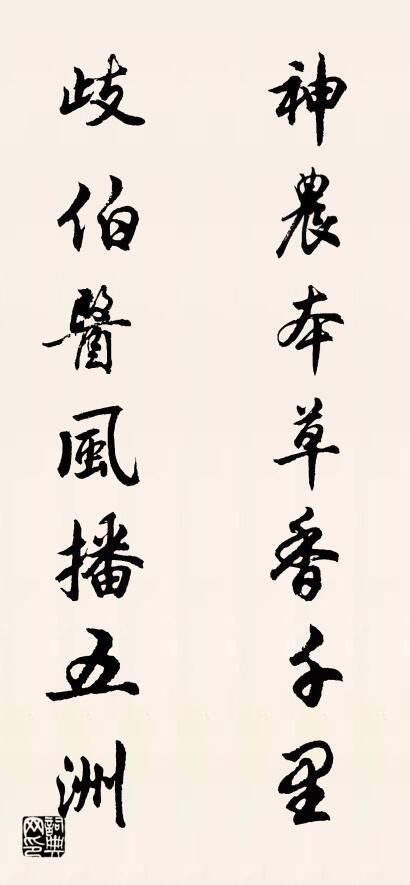 神農本草香千里
歧伯醫風播五洲
詞典网印